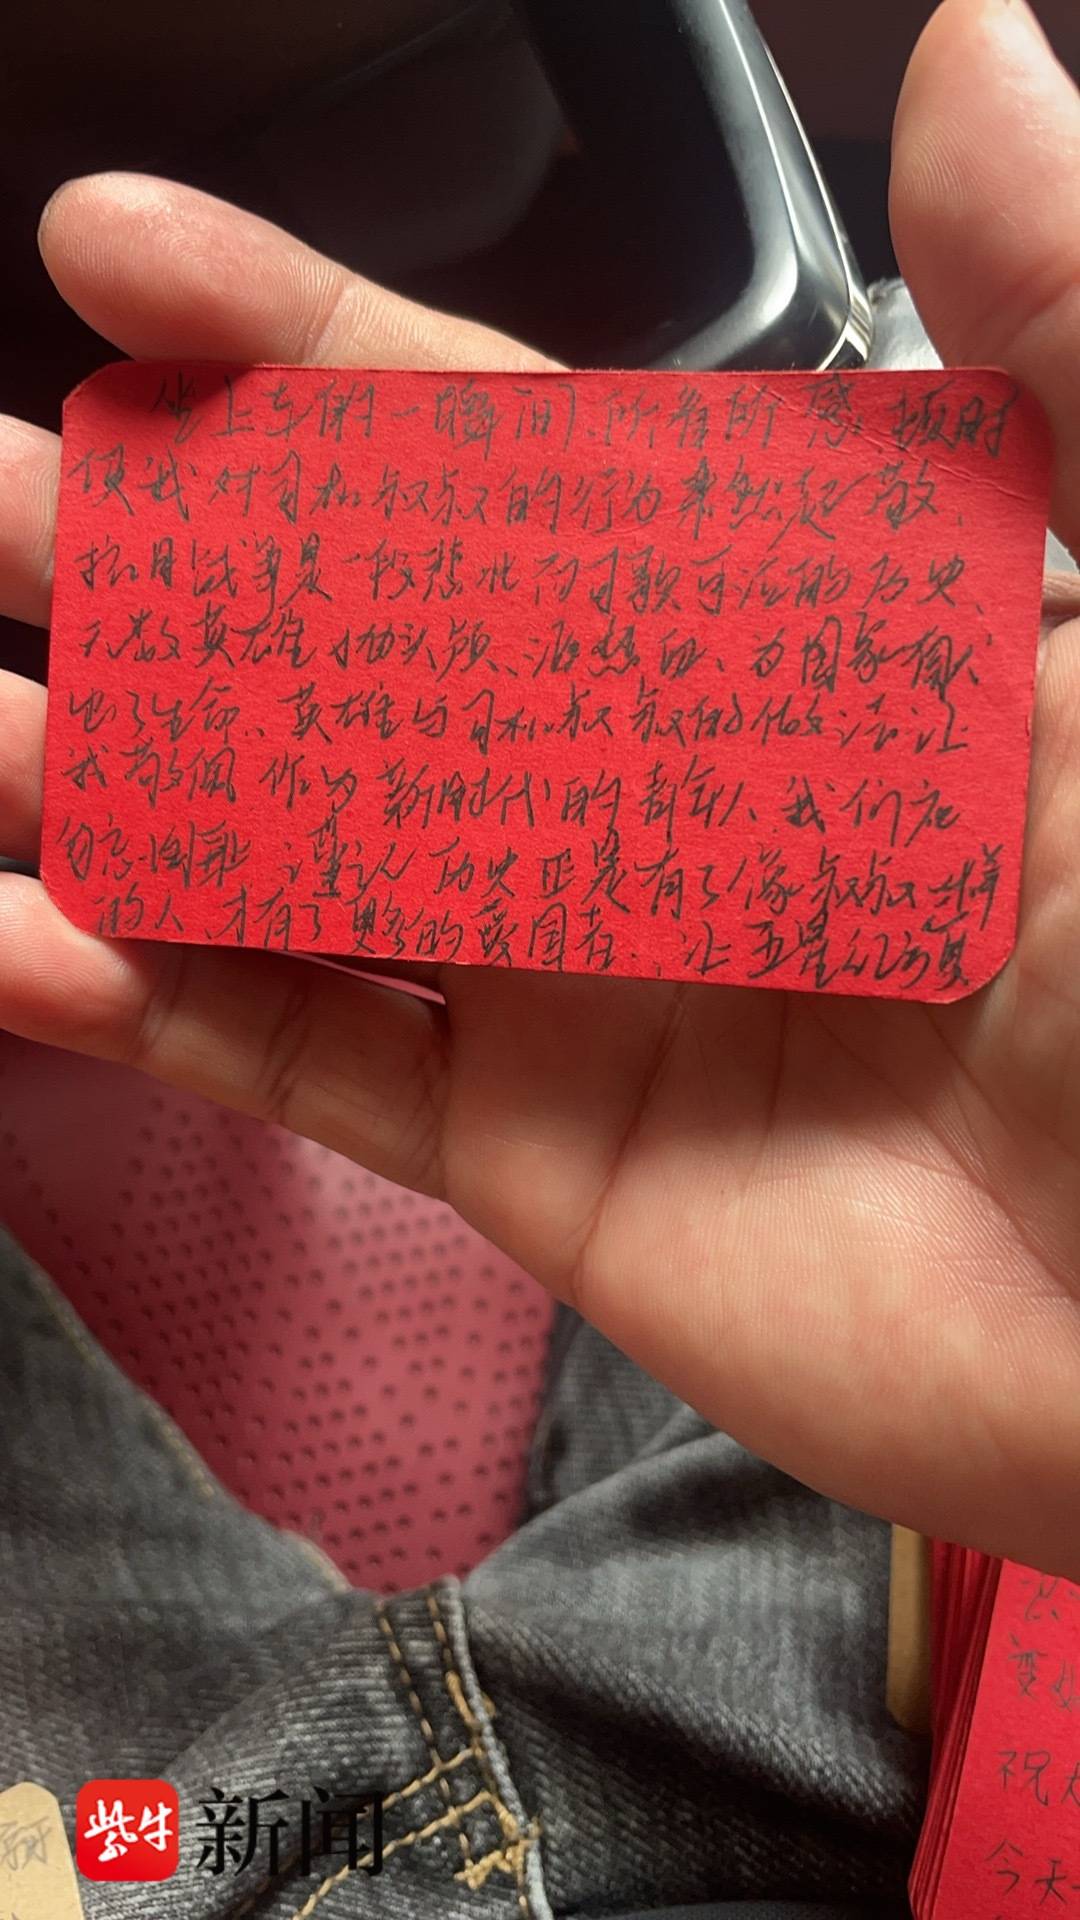 坐上车的一瞬间、所有的感 顿时
使我对司机叔叔的行为肃然起敬、
抗日战争是一段悲壮而可歌可泣的历史、
无数英雄抛头颅、洒热血、为国家献
出了生命、英雄与司机叔叔的做法让
我敬佩 作为新时代的青年人、我们应
勿忘国耻 谨记历史正是有了像叔叔一样
的人、才有了更多的爱国者、让五星红旗
变
祝
今天
紫牛 新闻